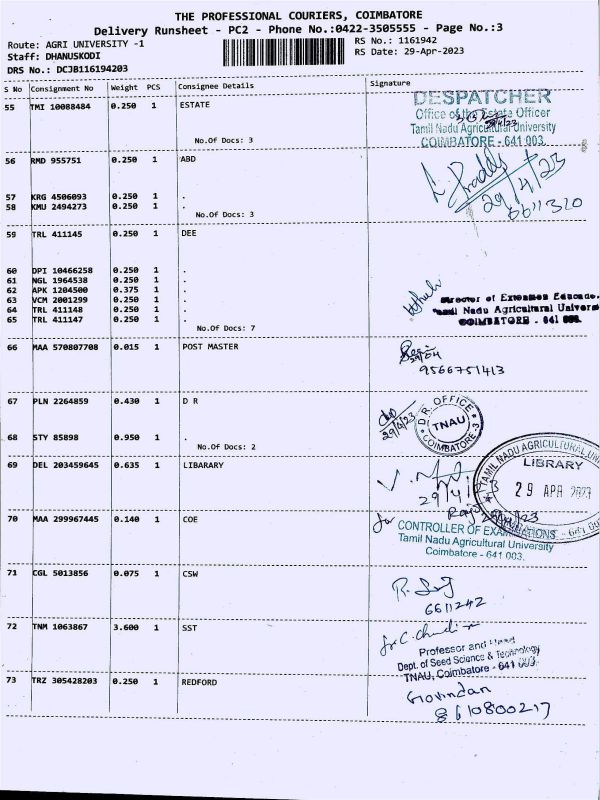 THE PROFESSIONAL COURIERS, COIMBATORE
Delivery Runsheet - PC2 - Phone No.:0422-3505555 - Page No.:3
Route: AGRI UNIVERSITY -1
RS No.: 1161942
Staff: DHANUSKODI
RS Date: 29-Apr-2023
DRS No.: DCJB116194203
S No Consignment No Weight PCS Consignee Details Signature
55 TMI 10088484 0.250 1 ESTATE
DESPATCHER
Office of the Estate Officer
Tamil Nadu Agricultural University
COIMBATORE - 641 003.
No.Of Docs: 3
56 RMD 955751 0.250 1 ABD
29/4/23
6611320
57 KRG 4506093 0.250 1 .
58 KMU 2494273 0.250 1 .
No.Of Docs: 3
59 TRL 411145 0.250 1 DEE
60 DPI 10466258 0.250 1 .
61 NGL 1964538 0.250 1 .
62 APK 1204500 0.375 1 .
63 VCM 2001299 0.250 1 .
64 TRL 411148 0.250 1 .
65 TRL 411147 0.250 1 .
No.Of Docs: 7
Director of Extension
Tamil Nadu Agricultural
COIMBATORE - 641 003.
66 MAA 570807708 0.015 1 POST MASTER
29/04
9566751413
67 PLN 2264859 0.430 1 D R
29/4/23
D.R. OFFICE
TNAU
COIMBATORE-3
68 STY 85898 0.950 1 .
No.Of Docs: 2
69 DEL 203459645 0.635 1 LIBARARY
29/4/
TAMIL NADU AGRICULTURAL
LIBRARY
29 APR 2023
70 MAA 299967445 0.140 1 COE
CONTROLLER OF EXAMINATIONS
Tamil Nadu Agricultural University
Coimbatore - 641 003.
71 CGL 5013856 0.075 1 CSW
6611242
72 TNM 1063867 3.600 1 SST
Professor and Head
Dept. of Seed Science & Technology
TNAU, Coimbatore - 641 003.
73 TRZ 305428203 0.250 1 REDFORD
Govindan
8610800217